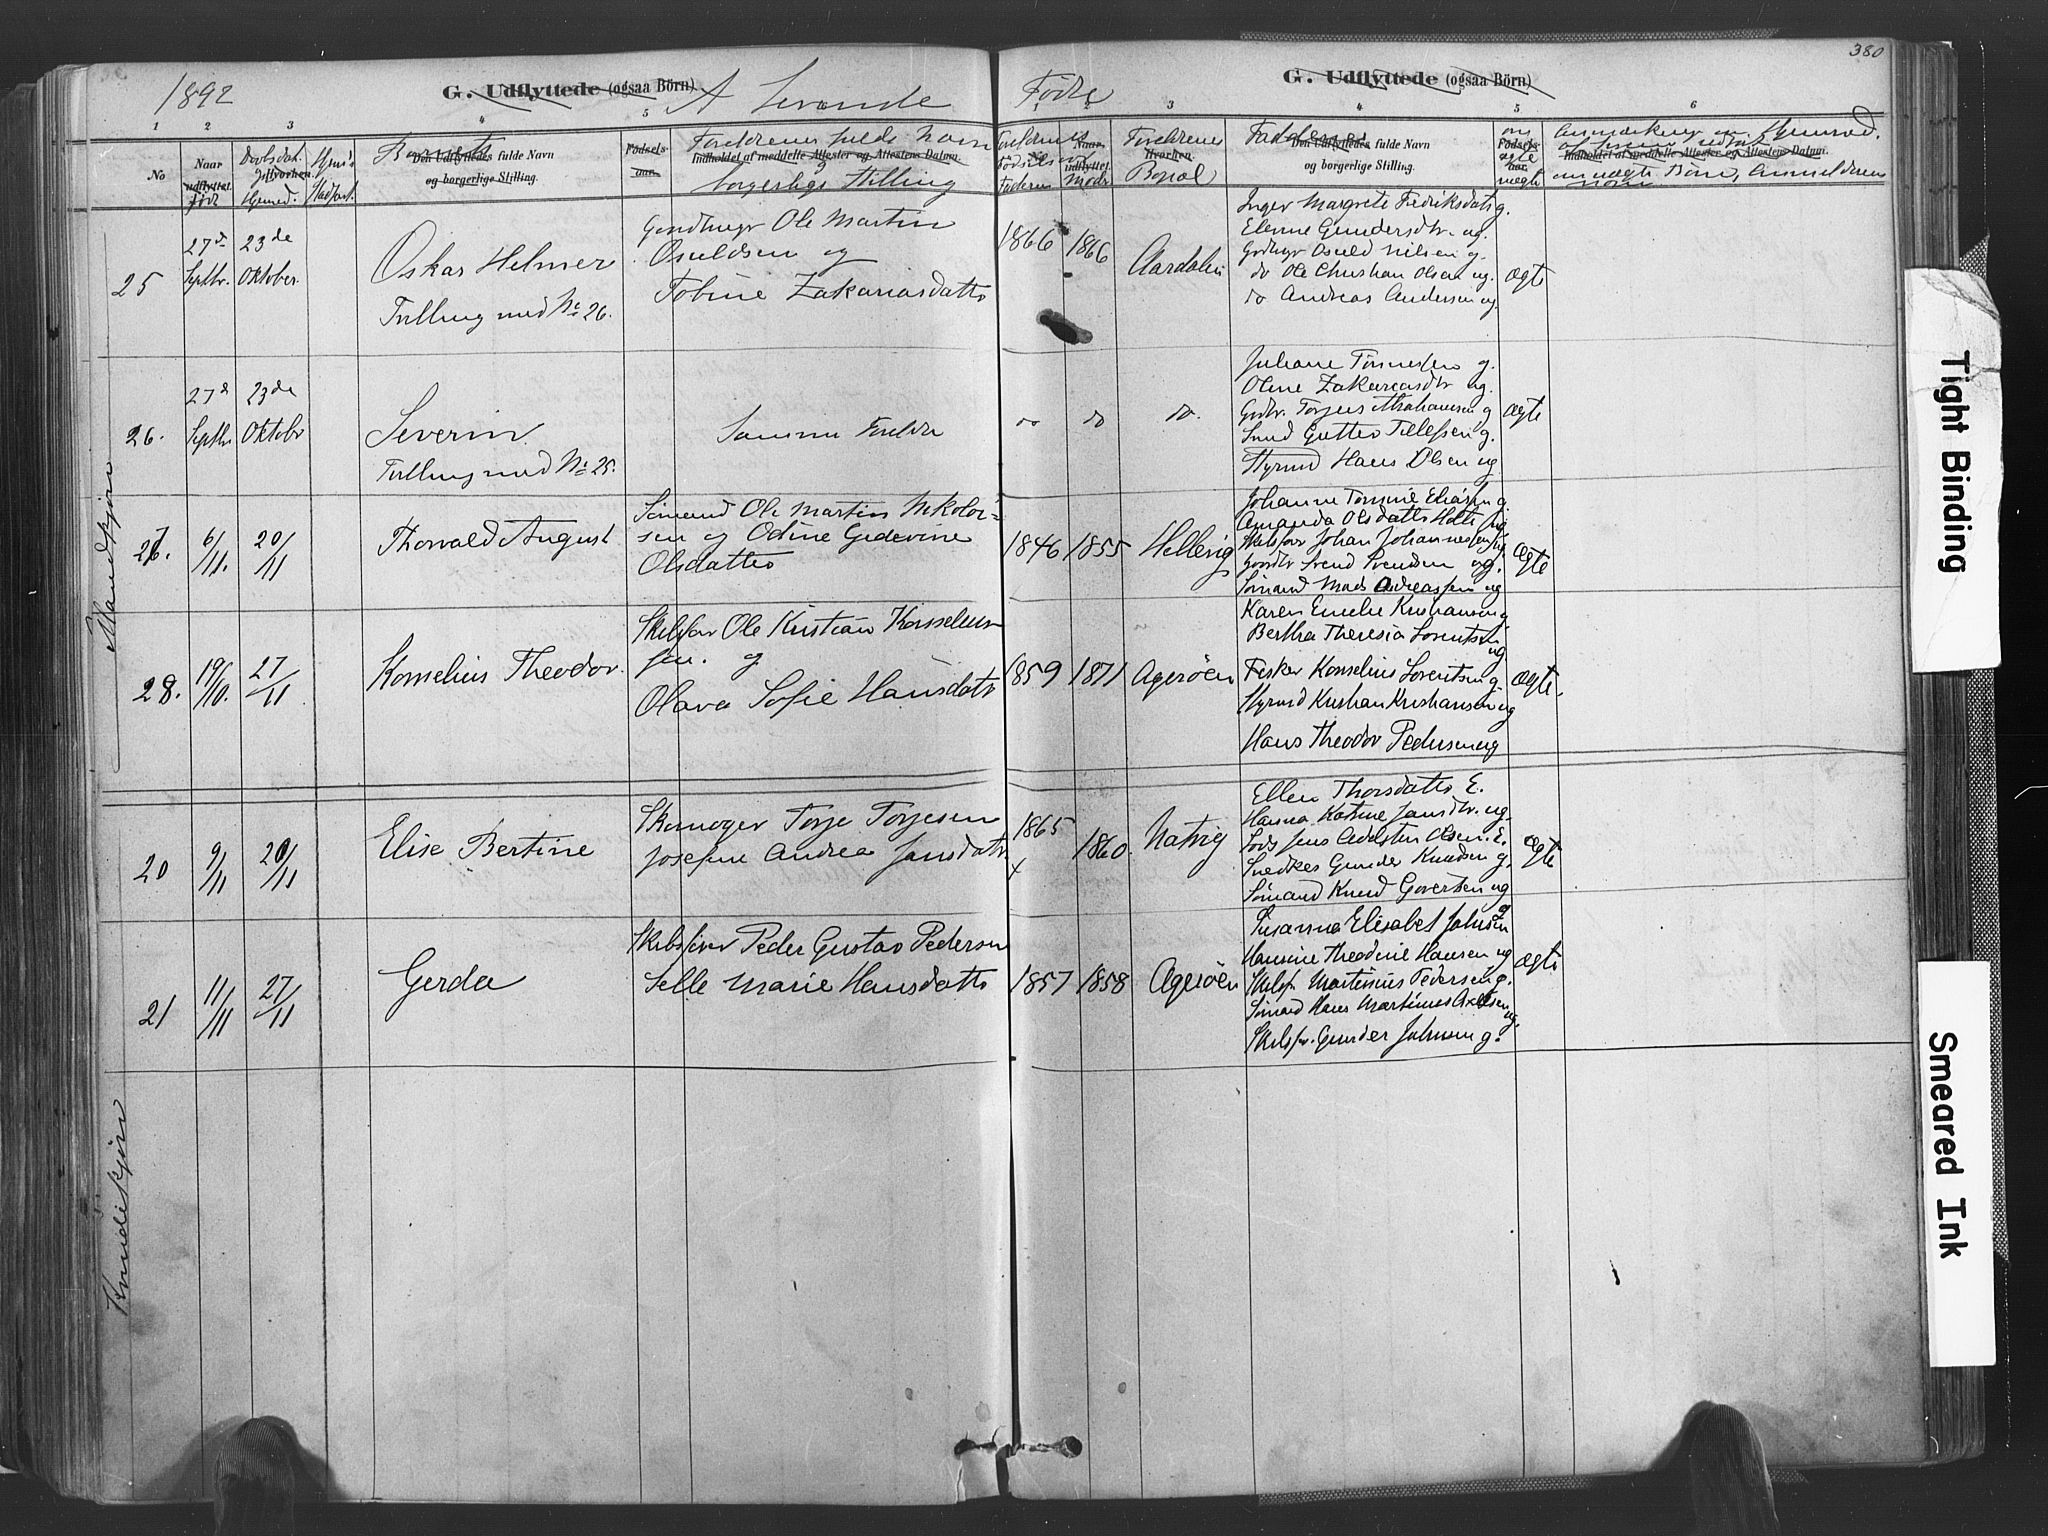 380
1892
G. Udflyttede (ogsaa Börn)
A Levende
Fødte
G. Udflyttede (ogsaa Börn)
1 2 3 4 5
1 3 4 5 6
No
Naar udflyttet. født
Daabsdat. Hvorhen.
Hjemd.
Barnets
Den Udflyttedes fulde Navn og borgerlige Stilling.
Födsels-aar.
Forældrenes fulde Navn og
Indholdet af meddelte Attester og Attestens Datum.
borgerlige Stilling
Faderens
Naar udflyttet. Mods
Forældrenes
Hvorhen.
Bopæl
Faddernes
Den Udflyttedes fulde Navn og borgerlige Stilling.
om
Födsels-aar
ægte
uægte
Indholdet af meddelte Attester og Attestens Datum.
om uægte Børn, Anmelderens
Mandkjøn
25
27de Septbr.
23de Oktober.
Oskar Helmer
Tvilling med No 26.
Ole Martin
Osuldsen og
Tobine Zakariasdatter
1866
1866
Aardalen
Inger Margrete Fredriksdatter g.
Elenne Gundersdtr. ug.
Osuld Nilsen g.
do Ole Christian Olsen ug.
do Andreas Andersen ug.
ægte
26.
27de Septbr.
23de Oktobr
Severin
Tvilling med No 25.
Samme Forældre
do
do
do.
Juliane Tønnessen g.
Oline Zakariasdtr ug.
Torjus Abrahamsen g
Gutter Tellefsen g.
Styrmd Hans Olsen ug
ægte
27.
6/11.
20/11
Thorvald August
Sømand Ole Martin Nikolai=
sen og Odine Gedevine
Olsdatter
1846
1855
Hellevig
Johanne Tomine g
Amanda Olsdatter Holte ug
Skibsfør Johan Johannesen g
Svend Svendsen ug.
Sømand Mads Andreassen ug
ægte
28.
19/10.
27/11
Kornelius Theodor.
Skibsfør Ole Kristian Kornelius
sen. og
Olava Sofie Hansdatr
1859
1871
Agerøen
Karen Emelie Kristiansen g
Bertha Theresia Lorentsen
ug
Fisker Kornelius Lorentsen g
Styrmd Kristian Kristiansen ug
Hans Theodor Pedersen ug
ægte.
Kvindekjøn
20
9/11
20/11
Elise Bertine
Skomager Torje Torjesen
Josefine Andrea Jansdatr
1865
x
1860.
Natvig
Ellen Thorsdatter E.
Hanna Katrine Jansdtr. ug
Lods Jens Adelsten Olsen. E.
Snedker Gunder Knudsen g
Sømand Knud Govertsen ug
ægte
21
11/11
27/11
Gerda
Skibsfører Peder Gustav Pedersen
Selle Marie Hansdatter
1857
1858
Agerøen
Susanna Elisabet Johnsen
g
Hansine Theodine Hansen ug
Skibsf Martinius Pedersen g.
Sømand Hans Martinius Axelsen
ug.
Skibsfør. Gunder Johnsen g.
ægte
Tight Binding
Smeared Ink